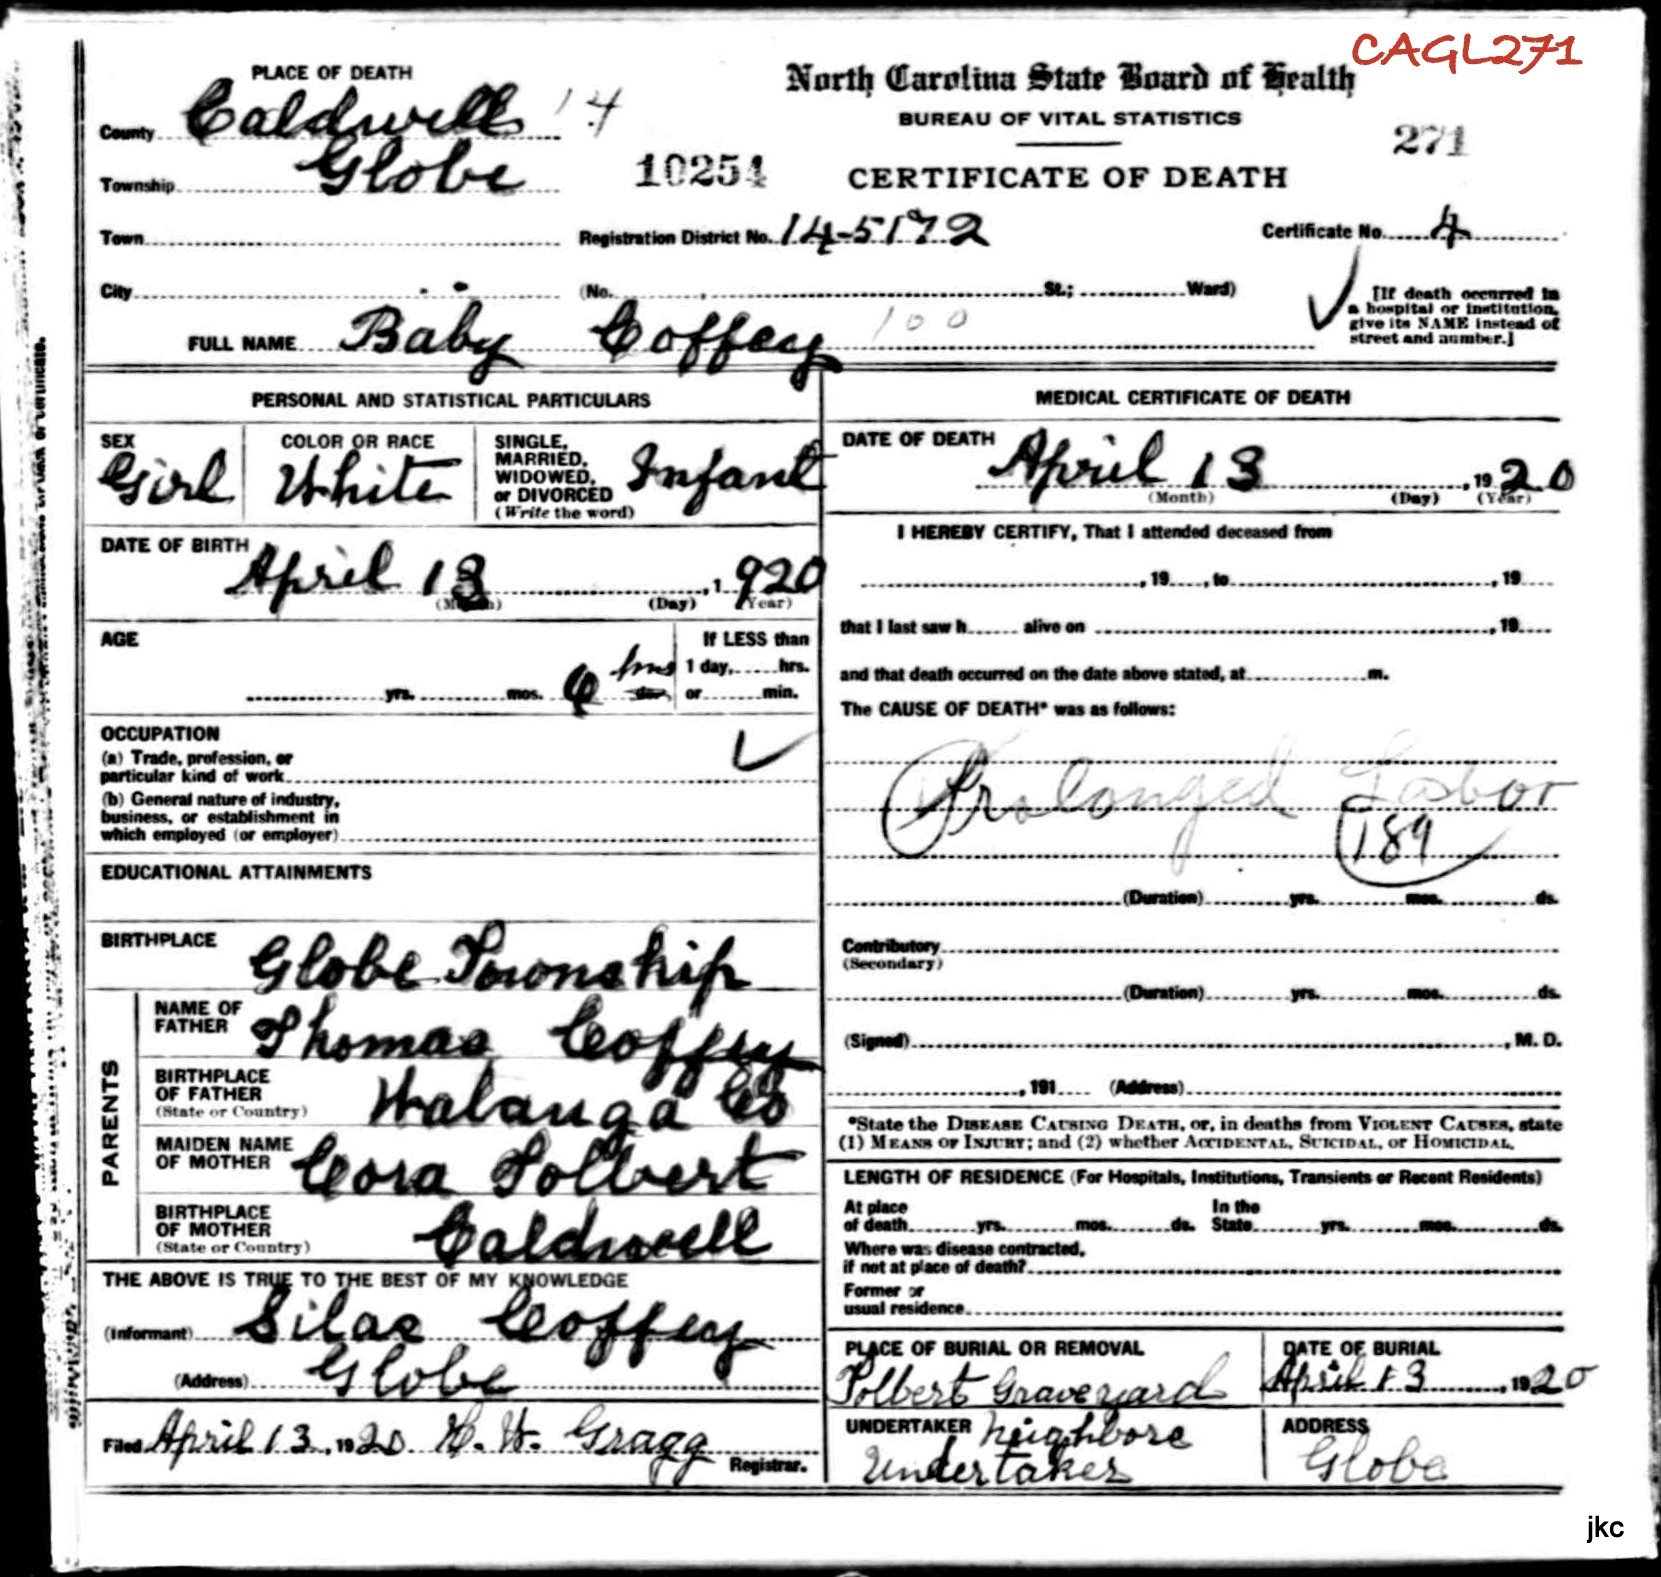 CAGL271
PLACE OF DEATH
North Carolina State Board of Health
County Caldwell 14
BUREAU OF VITAL STATISTICS
271
Township Globe
10254
CERTIFICATE OF DEATH
Town
Registration District No. 14-5172
Certificate No. 4
City (No. St.; Ward)
[If death occurred in
a hospital or institution,
give its NAME instead of
street and number.]
FULL NAME Baby Coffey 100
PERSONAL AND STATISTICAL PARTICULARS
SEX
Girl
COLOR OR RACE
White
SINGLE,
MARRIED,
WIDOWED,
or DIVORCED
(Write the word)
Infant
DATE OF BIRTH
April 13 , 1 920
(Month) (Day) (Year)
AGE
yrs. mos. hrs ds.
If LESS than
1 day, hrs.
or min.
OCCUPATION
(a) Trade, profession, or
particular kind of work
(b) General nature of industry,
business, or establishment in
which employed (or employer)
EDUCATIONAL ATTAINMENTS
BIRTHPLACE
Globe Township
PARENTS
NAME OF
FATHER
Thomas Coffey
BIRTHPLACE
OF FATHER
(State or Country)
Watauga Co
MAIDEN NAME
OF MOTHER
Cora Tolbert
BIRTHPLACE
OF MOTHER
(State or Country)
Caldwell
THE ABOVE IS TRUE TO THE BEST OF MY KNOWLEDGE
(Informant) Silas Coffey
(Address) Globe
Filed April 13, 1920 H. W. Gragg
Registrar.
MEDICAL CERTIFICATE OF DEATH
DATE OF DEATH
April 13 , 1920
(Month) (Day) (Year)
I HEREBY CERTIFY, That I attended deceased from
, 19 , to , 19
that I last saw h alive on , 19
and that death occurred on the date above stated, at m.
The CAUSE OF DEATH* was as follows:
Prolonged Labor
189
(Duration) yrs. mos. ds.
Contributory
(Secondary)
(Duration) yrs. mos. ds.
(Signed) , M. D.
, 191 (Address)
*State the DISEASE CAUSING DEATH, or, in deaths from VIOLENT CAUSES, state
(1) MEANS OF INJURY; and (2) whether ACCIDENTAL, SUICIDAL, or HOMICIDAL.
LENGTH OF RESIDENCE (For Hospitals, Institutions, Transients or Recent Residents)
At place
of death yrs. mos. ds.
In the
State yrs. mos. ds.
Where was disease contracted,
if not at place of death?
Former or
usual residence
PLACE OF BURIAL OR REMOVAL
Tolbert Graveyard
DATE OF BURIAL
April 13 , 1920
UNDERTAKER neighbors
Undertaker
ADDRESS
Globe
jkc